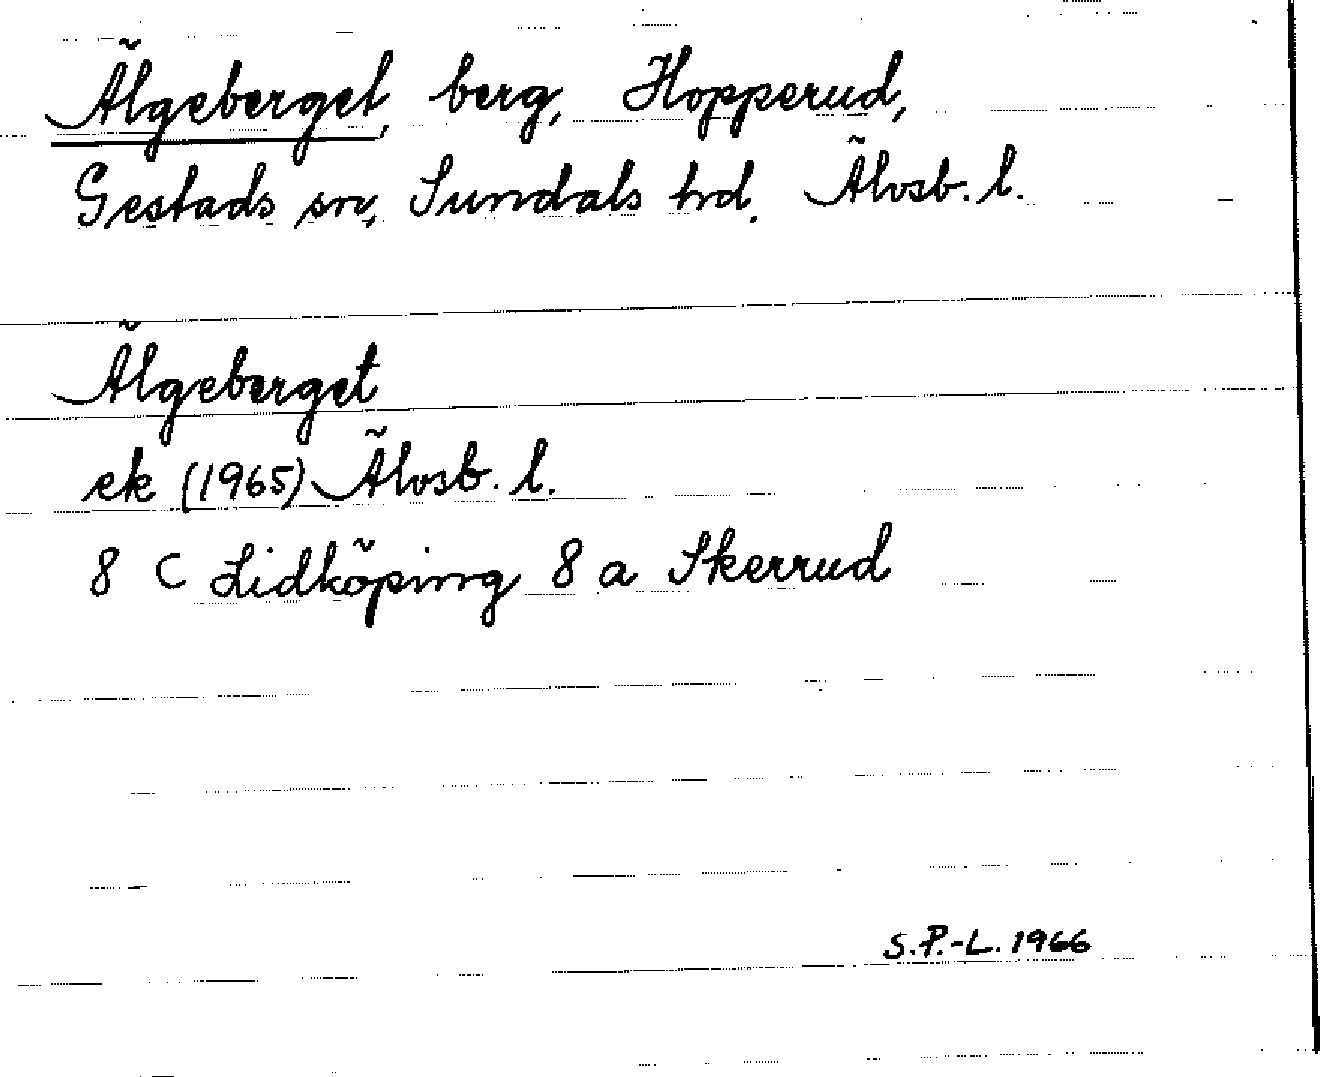 Älgeberget, berg, Hopperud,
Gestads sn, Sundals hd. Älvsb. l.
Älgeberget
ek (1965) Älvsb. l.
8 C Lidköping 8 a Skerrud
S.P.-L. 1966